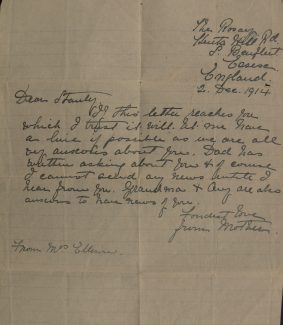 The Rosary
Hill Rd
S. Benfleet
Essex
England.
2. Dec. 1914
Dear Stanley
If this letter reaches you
which I trust it will let me have
a line if possible as we are all
very anxious about you. Dad has
written asking about you & of course
I cannot send any news until I
hear from you. Grandma & Avy are also
anxious to have news of you.
Fondest love
from Mother.
From Mrs